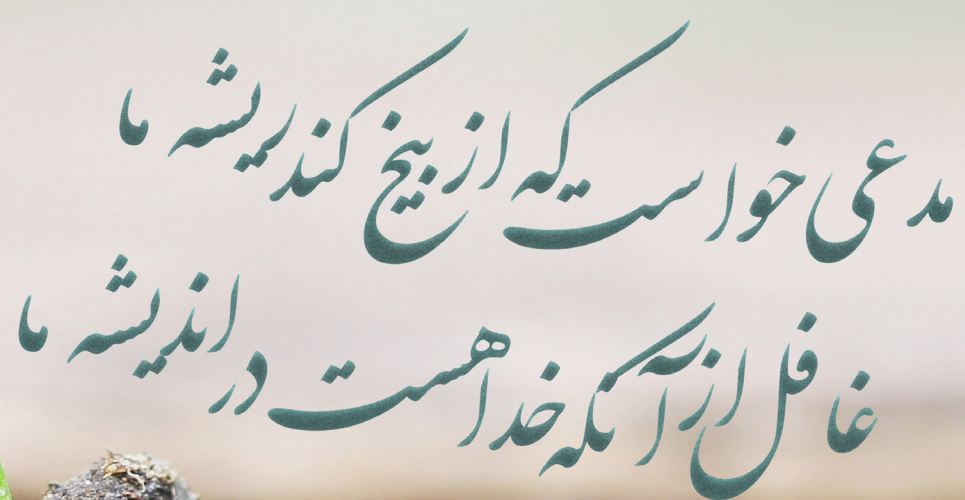 مدعی خواست که از بیخ کند ریشه ما
غافل از آنکه خدا هست در اندیشه ما